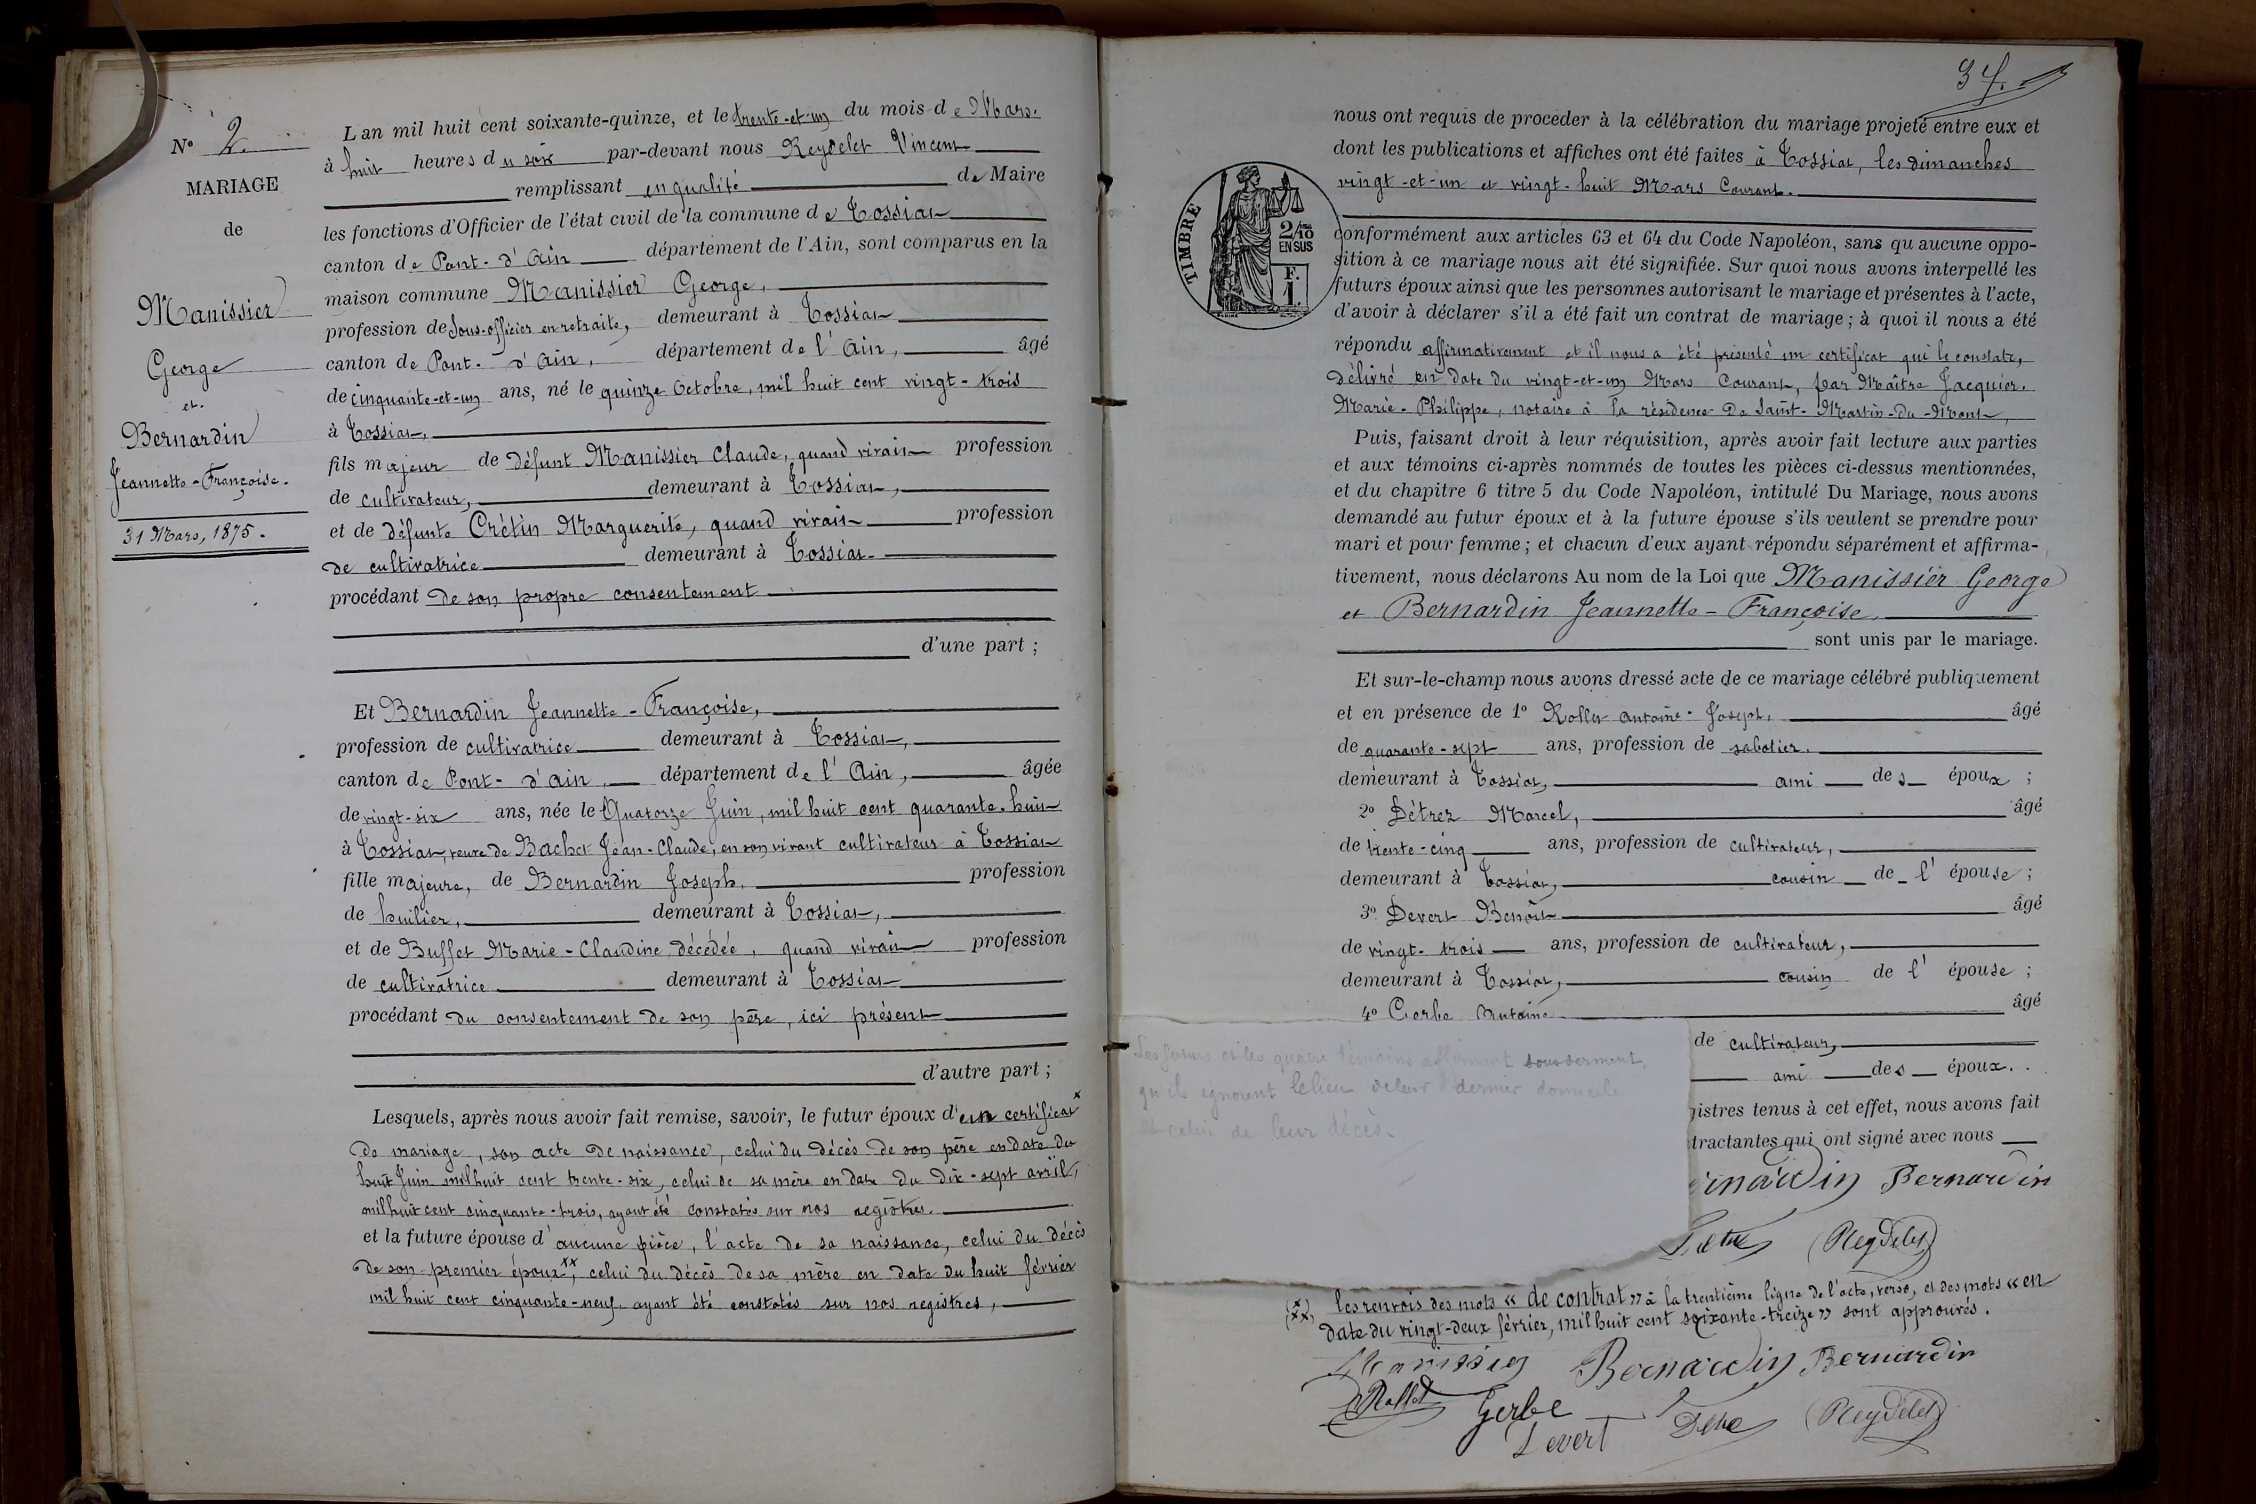 N° 2.
MARIAGE
de
Manissier
George
et
Bernardin
Jeannette-Françoise.
31 Mars, 1875.
L'an mil huit cent soixante-quinze, et le trente-et-un du mois de Mars.
à huit heures du soir par-devant nous Reydelet Vincent
remplissant en qualité de Maire
les fonctions d'Officier de l'état civil de la commune de Tossiat
canton de Pont-d'Ain département de l'Ain, sont comparus en la
maison commune Manissier George,
profession de Sous-officier en retraite, demeurant à Tossiat
canton de Pont-d'Ain, département de l'Ain, âgé
de cinquante-et-un ans, né le quinze Octobre, mil huit cent vingt-trois
à Tossiat,
fils majeur de défunt Manissier Claude, quand vivait profession
de cultivateur, demeurant à Tossiat,
et de défunte Crétin Marguerite, quand vivait profession
de cultivatrice demeurant à Tossiat
procédant de son propre consentement
d'une part ;
Et Bernardin Jeannette-Françoise,
profession de cultivatrice demeurant à Tossiat,
canton de Pont-d'Ain, département de l'Ain, âgée
de vingt-six ans, née le Quatorze Juin, mil huit cent quarante-huit
à Tossiat, veuve de Bachet Jean-Claude, en son vivant cultivateur à Tossiat
fille majeure, de Bernardin Joseph, profession
de huilier, demeurant à Tossiat,
et de Buffet Marie-Claudine décédée, quand vivait profession
de cultivatrice demeurant à Tossiat
procédant du consentement de son père, ici présent
d'autre part ;
Lesquels, après nous avoir fait remise, savoir, le futur époux d'un certificat x
de mariage, son acte de naissance, celui du décès de son père en date du
huit Juin mil huit cent trente-six, celui de sa mère en date du dix-sept avril,
mil huit cent cinquante-trois, ayant été constatés sur nos registres.
et la future épouse d'aucune pièce, l'acte de sa naissance, celui du décès
de son premier époux xx, celui du décès de sa mère en date du huit février
mil huit cent cinquante-neuf, ayant été constatés sur nos registres,
37.
nous ont requis de procéder à la célébration du mariage projeté entre eux et
dont les publications et affiches ont été faites à Tossiat, les dimanches
vingt-et-un et vingt-huit Mars Courant.
TIMBRE
2/10
EN SUS
F.
1.
conformément aux articles 63 et 64 du Code Napoléon, sans qu'aucune oppo-
sition à ce mariage nous ait été signifiée. Sur quoi nous avons interpellé les
futurs époux ainsi que les personnes autorisant le mariage et présentes à l'acte,
d'avoir à déclarer s'il a été fait un contrat de mariage ; à quoi il nous a été
répondu affirmativement et il nous a été présenté un certificat qui le constate,
délivré en date du vingt-et-un Mars Courant, par Maître Jacquier.
Marie-Philippe, notaire à la résidence de Saint-Martin-du-Mont,
Puis, faisant droit à leur réquisition, après avoir fait lecture aux parties
et aux témoins ci-après nommés de toutes les pièces ci-dessus mentionnées,
et du chapitre 6 titre 5 du Code Napoléon, intitulé Du Mariage, nous avons
demandé au futur époux et à la future épouse s'ils veulent se prendre pour
mari et pour femme ; et chacun d'eux ayant répondu séparément et affirma-
tivement, nous déclarons Au nom de la Loi que Manissier George
et Bernardin Jeannette-Françoise,
sont unis par le mariage.
Et sur-le-champ nous avons dressé acte de ce mariage célébré publiquement
et en présence de 1° Rollet Antoine-Joseph, âgé
de quarante-sept ans, profession de sabotier.
demeurant à Tossiat, ami des époux ;
2° Détrez Marcel, âgé
de trente-cinq ans, profession de cultivateur,
demeurant à Tossiat, cousin de l'épouse ;
3° Devert Benoît âgé
de vingt-trois ans, profession de cultivateur,
demeurant à Tossiat, cousin de l'épouse ;
4° Gerbe Antoine âgé
de cultivateur,
ami des époux.
Les futurs et les quatre témoins affirment sous serment,
qu'ils ignorent le lieu de leur dernier domicile
et celui de leur décès.
gistres tenus à cet effet, nous avons fait
tractantes qui ont signé avec nous
rnardin Bernardin
Reydelet
(x) (xx) les renvois des mots « de contrat » à la trentième ligne de l'acte, verso, et des mots « en
date du vingt-deux février, mil huit cent soixante-treize » sont approuvés.
Manissier Bernardin Bernardin
Rollet Gerbe Reydelet
Devert